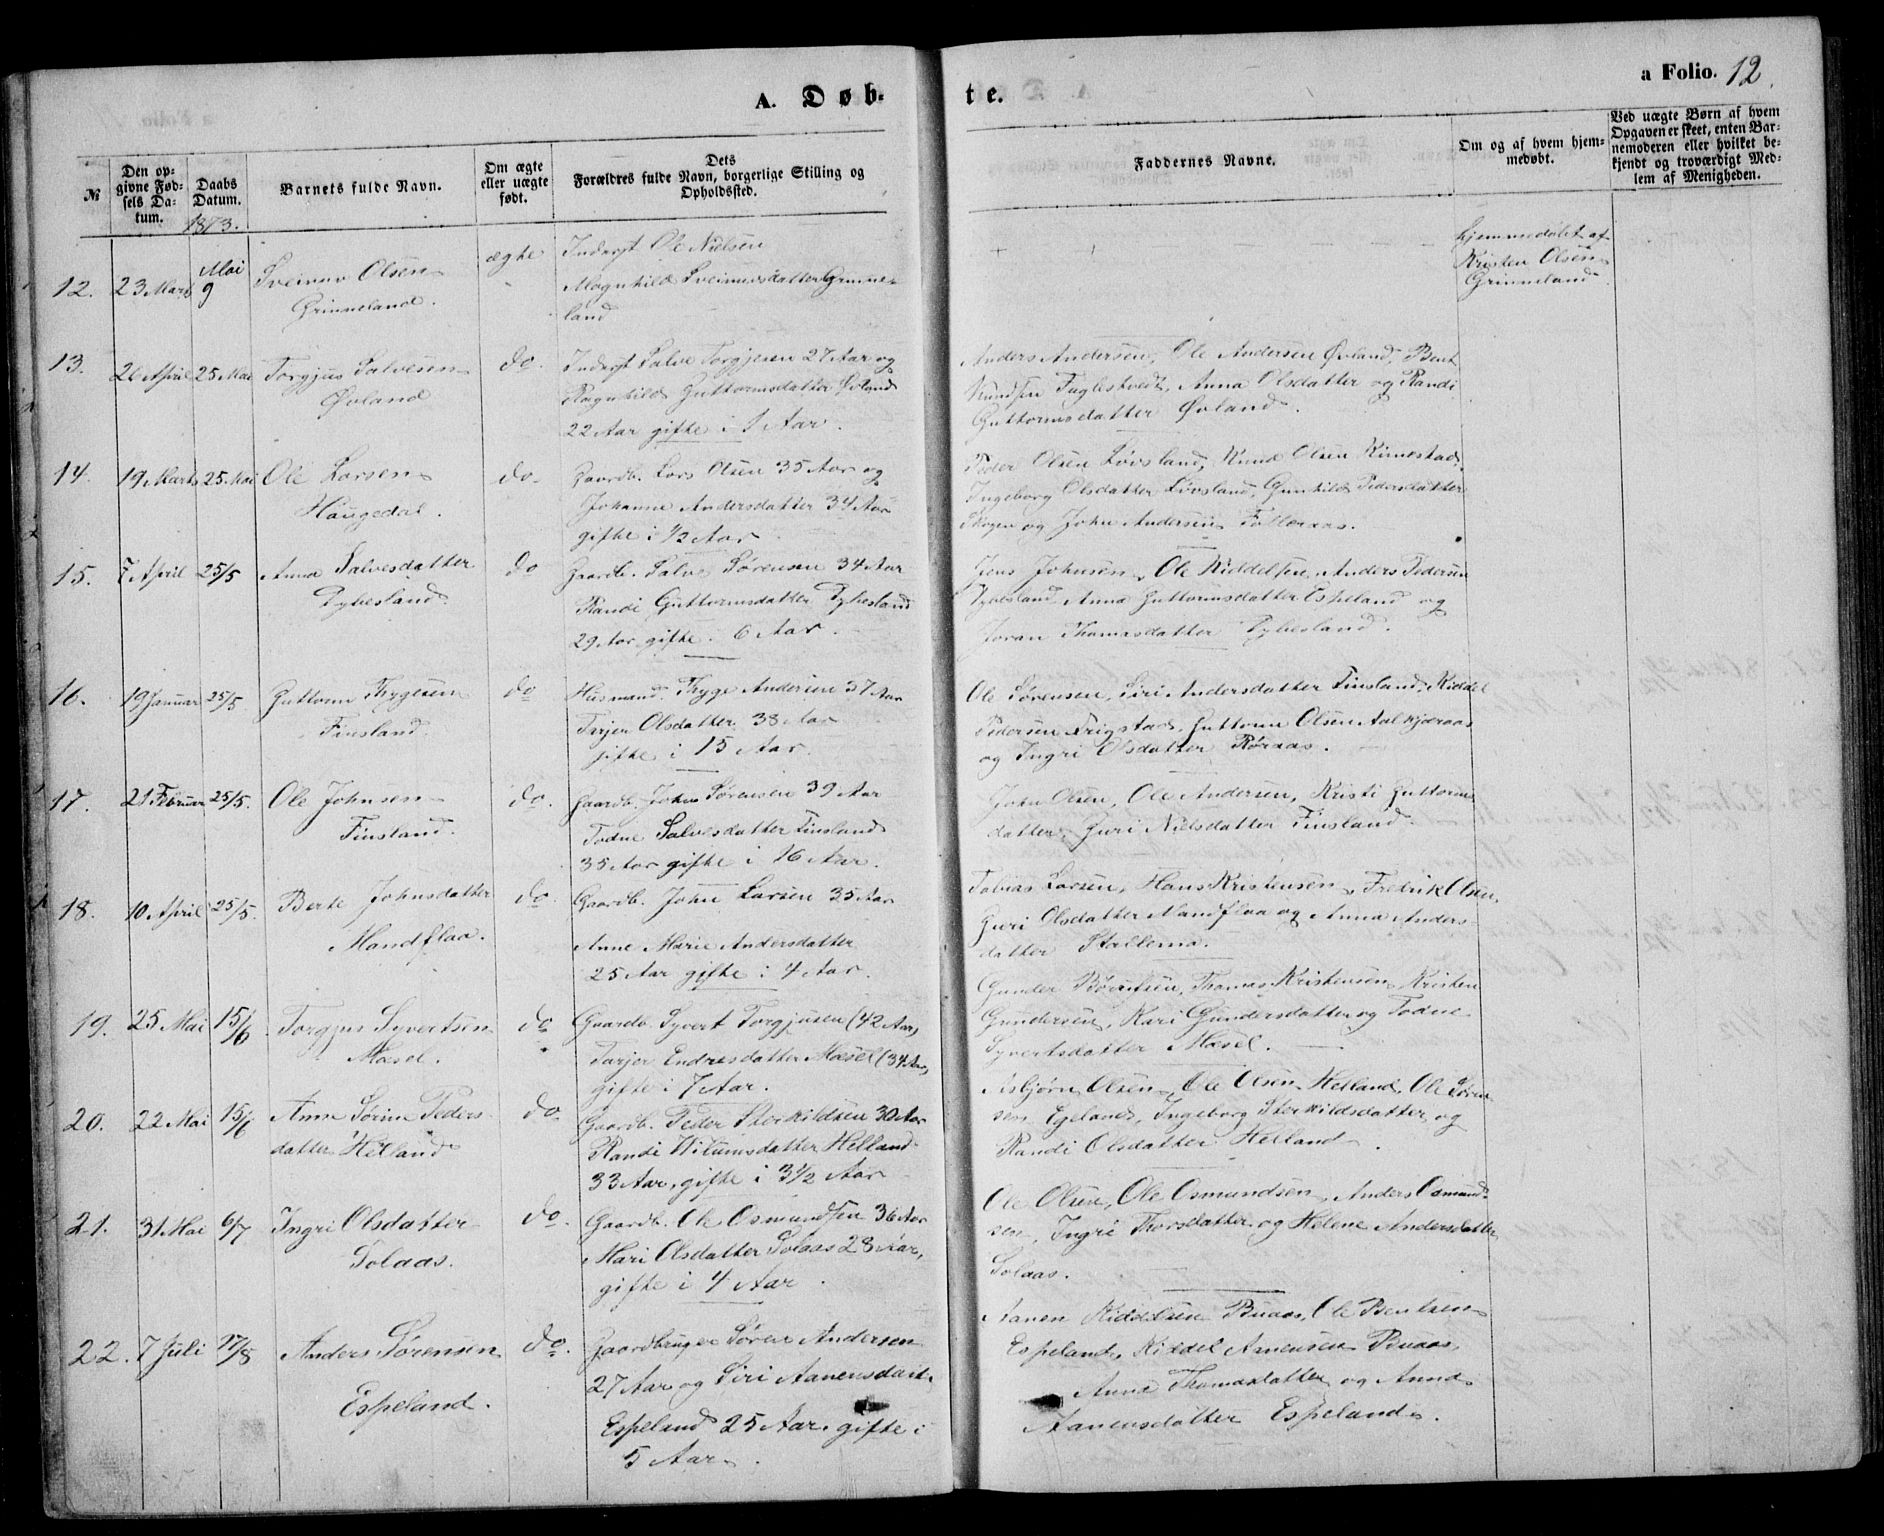 A. Døb-
te.
a Folio. 12.
№
Den op-
givne Fød-
sels Da-
tum.
Daabs
Datum.
1873.
Barnets fulde Navn.
Om ægte
eller uægte
født.
Dets
Forældres fulde Navn, borgerlige Stilling og
Opholdssted.
Faddernes Navne.
Om og af hvem hjem-
medøbt.
Ved uægte Børn af hvem
Opgaven er skeet, enten Bar-
nemoderen eller hvilket be-
kjendt og troværdigt Med-
lem af Menigheden.
12. 23 Marts Mai 9
Olsen
Grinneland.
ægte
Inderst Ole Nielsen
Magnhild
land
hjemmedøbt af
Kristen Olsen
Grinneland
13. 26 April 25 Mai
Torgjus Salvesen
Øvland
do.
Inderst Salve Torgjesen 27 Aar og
Ragnhild Guttormsdatter Øvland
22 Aar gifte i 1 Aar.
Anders Andersen, Ole Andersen Øvland, Bent
Knudsen Fuglestvedt, Anna Olsdatter og Randi
Guttormsdatter Øvland.
14. 19 Marts 25 Mai
Ole Larsen
Haugedal.
do.
Gaardb. Lars Olsen 35 Aar og
Johanne Andersdatter 34 Aar
gifte i ½ Aar
Peder Olsen Løvsland, Knud Olsen
Ingeborg Olsdatter Løvsland, Gunhild Pedersdatter
Skogen og John Andersen
15. 7 April 25/5
Anna Salvesdatter
Dybesland.
do
Gaardb. Salve Sørensen 34 Aar
Randi Guttormsdatter Dybesland
29 Aar gifte i 6 Aar.
Jens Johnsen, Ole Kiddelsen, Anders Pedersen
Dybesland Anna Guttormsdatter Espeland og
Joran Thomasdatter Dybesland.
16. 19 Januar 25/5
Guttorm Thygesen
Finsland.
do
Husmand Thyge Andersen 37 Aar
Tarjer Olsdatter 38 Aar
gifte i 15 Aar.
Ole Sørensen, Siri Andersdatter Finsland, Kiddel
Pedersen Frigstad, Guttorm Olsen
og Ingri Olsdatter Røraas.
17. 21 Februar 25/5.
Ole Johnsen
Finsland.
do.
Gaardb. John Sørensen 39 Aar
Todne Salvesdatter Finsland
35 Aar gifte i 16 Aar.
John Olsen, Ole Andersen, Kristi Guttorms
datter, Guri Nielsdatter Finsland.
18. 10 April 25/5.
Berte Johnsdatter
Mandflaa.
do.
Gaardb. John Larsen 35 Aar
Anne Marie Andersdatter
25 Aar gifte i 4 Aar.
Tobias Larsen, Hans Kristensen, Fredrik Olsen,
Guri Olsdatter Mandflaa og Anna Anders-
datter Stallemo.
19. 25 Mai 15/6
Torgjus Syvertsen
Mæsel.
do
Gaardb. Syvert Torgjusen (42 Aar)
Tarjer Endresdatter Mæsel (34 Aar,
gifte i 7 Aar.
Gunder Børufsen, Thomas Kristensen, Kristen
Gundersen, Kari Gundersdatter og Todne
Syvertsdatter Mæsel.
20. 22 Mai 15/6
Anne Sørine Peders-
datter Helland
do
Gaardb. Peder Sterkildsen 30 Aar
Randi Helland
33 Aar, gifte i 3½ Aar
Asbjørn Olsen, Ole Olsen Helland, Ole Søren
sen Egeland, Ingeborg Sterkildsdatter og
Randi Olsdatter Helland.
21. 31 Mai 6/7
Ingri Olsdatter
Solaas.
do.
Gaardb. Ole Osmundsen 36 Aar
Mari Olsdatter Solaas 28 Aar,
gifte i 4 Aar.
Ole Olsen, Ole Osmundsen, Anders Osmund-
sen, Ingri Thorsdatter og Helene Andersdatter
Solaas.
22. 7 Juli 17/8
Anders Sørensen
Espeland.
do.
Gaardbruger Søren Andersen
27 Aar og Siri Aanensdatt.
Espeland 25 Aar. gifte i
5 Aar.
Aanen Kiddelsen Buaas, Ole Bentsen
Espeland, Kiddel Aanensen Buaas,
Anna Thomasdatter og Anna
Aanensdatter Espeland.